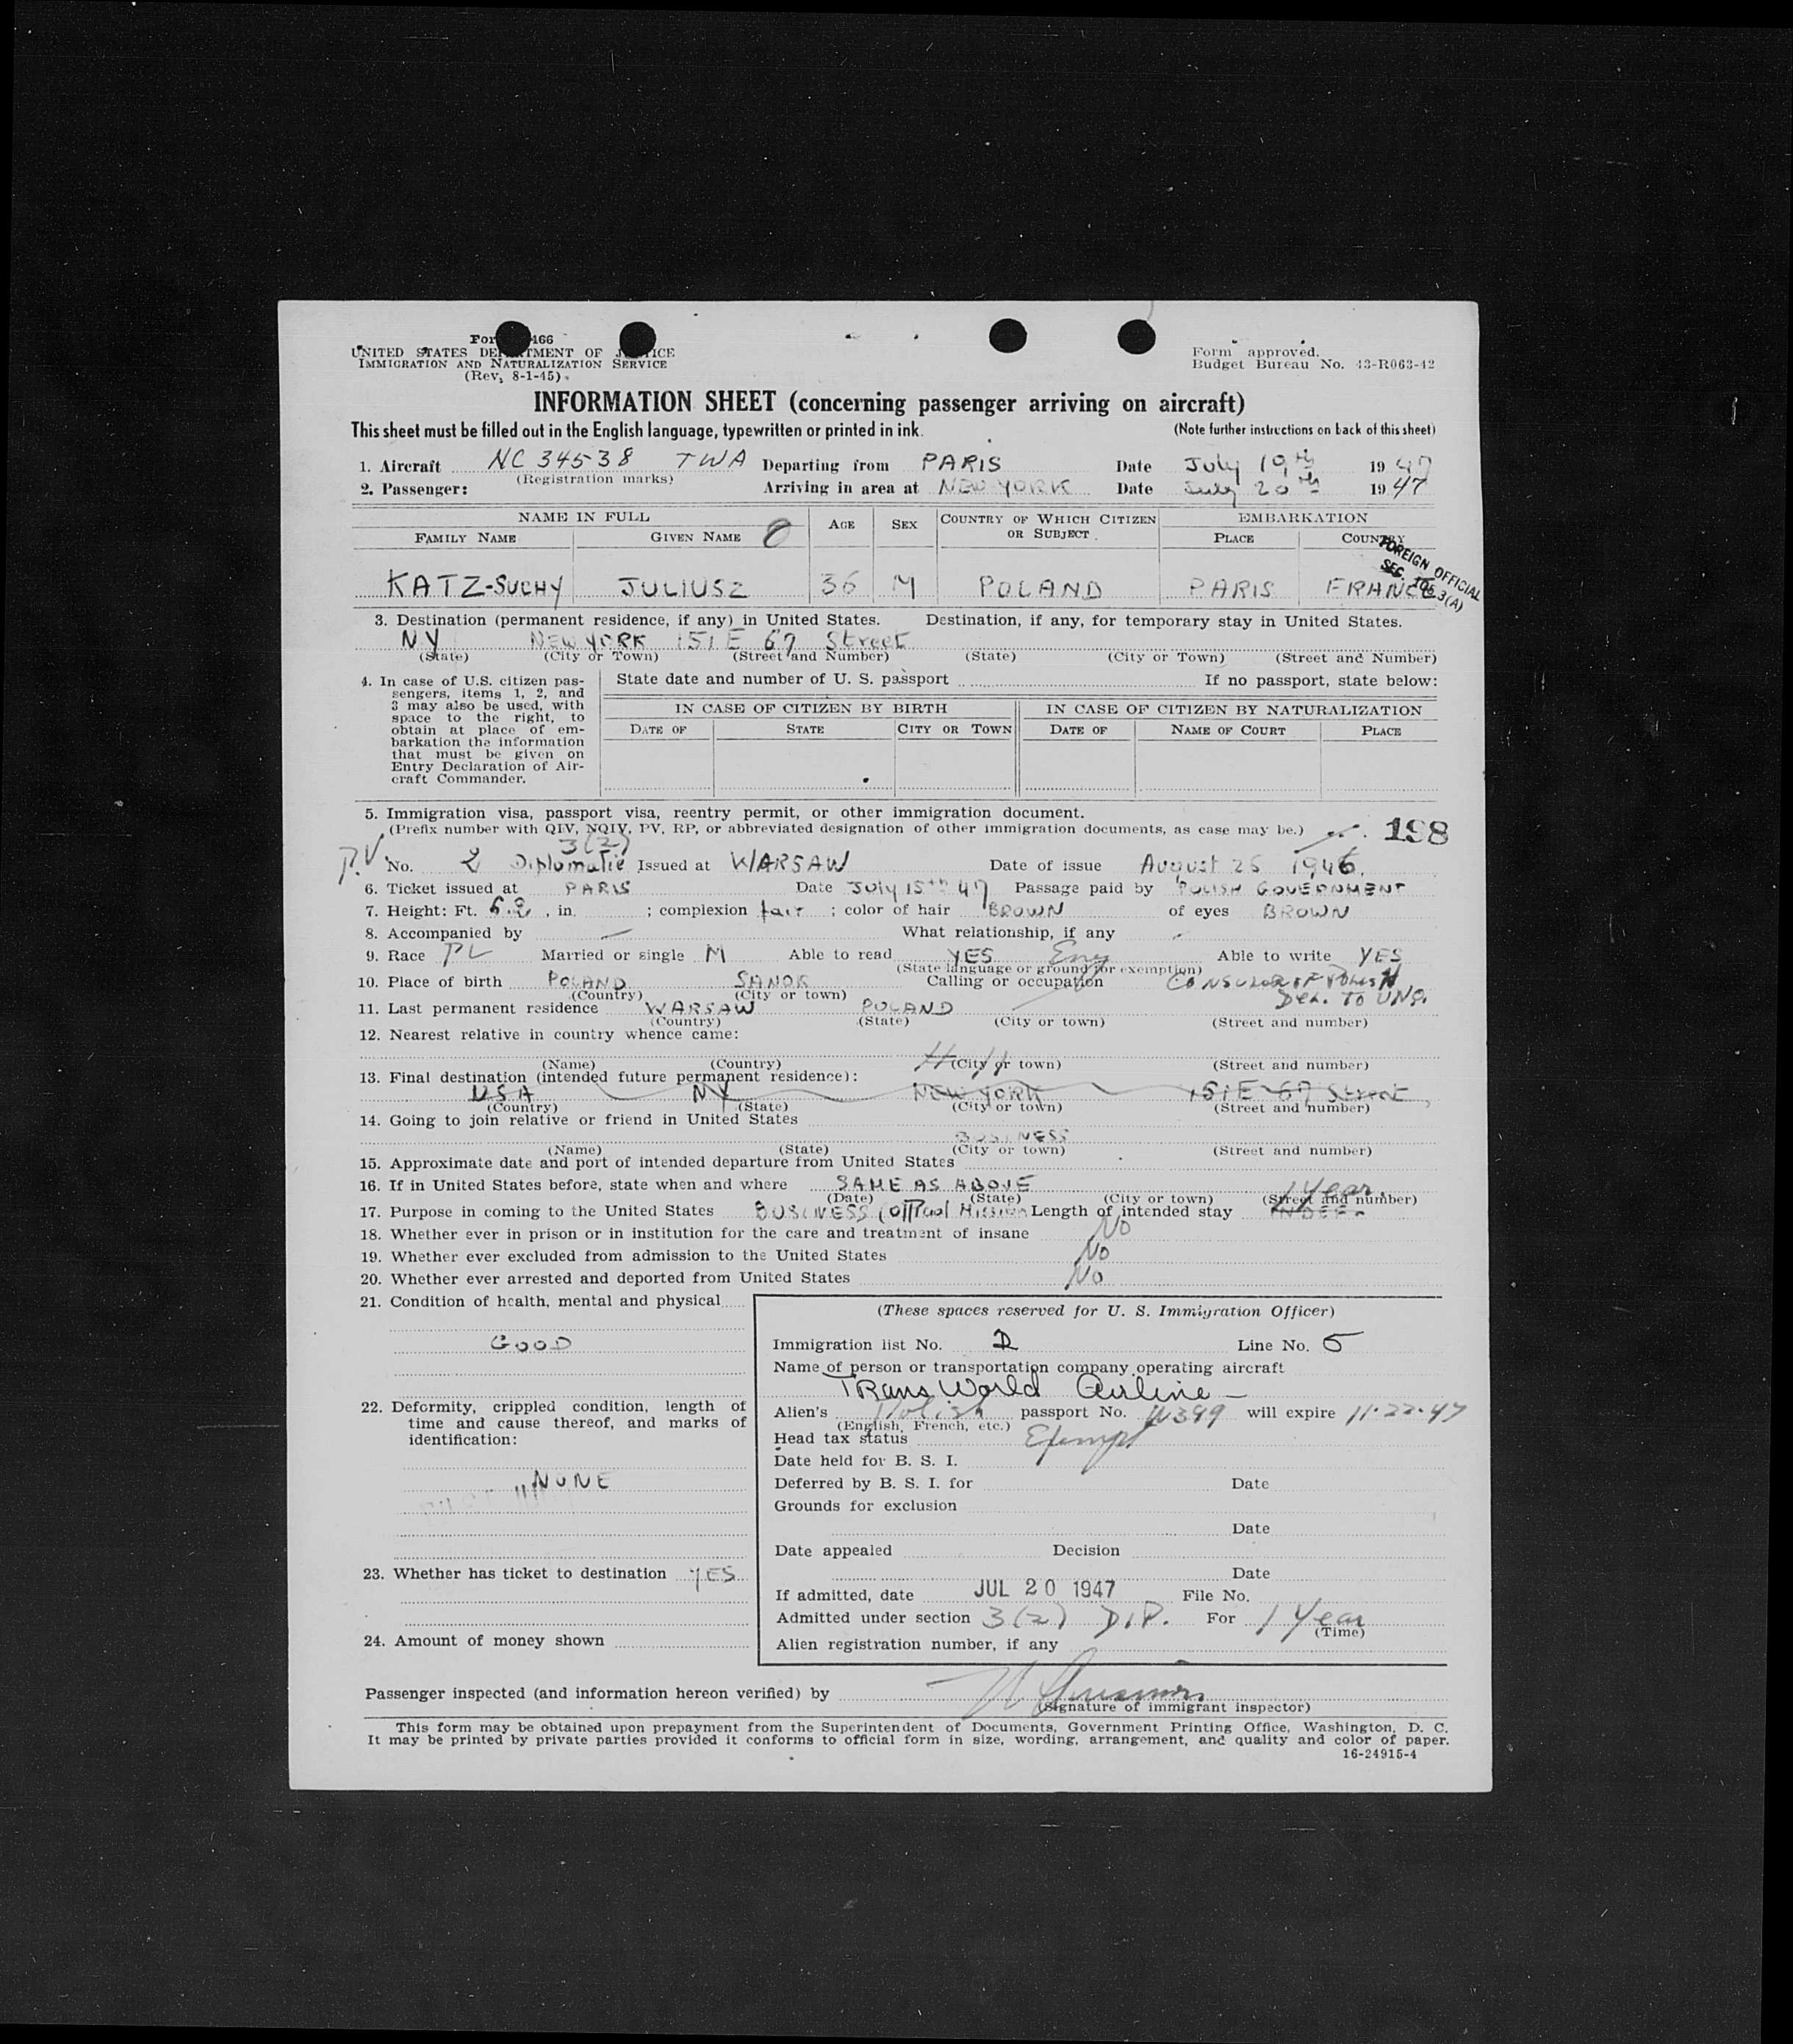 For 466
UNITED STATES DEPARTMENT OF JUSTICE
IMMIGRATION AND NATURALIZATION SERVICE
(Rev. 8-1-45)
Form approved.
Budget Bureau No. 43-R063-42
INFORMATION SHEET (concerning passenger arriving on aircraft)
This sheet must be filled out in the English language, typewritten or printed in ink. (Note further instructions on back of this sheet)
1. Aircraft NC 34538 TWA Departing from PARIS Date July 19th 1947
(Registration marks)
2. Passenger: Arriving in area at NEW YORK Date July 20th 1947
NAME IN FULL AGE SEX COUNTRY OF WHICH CITIZEN OR SUBJECT EMBARKATION
FAMILY NAME GIVEN NAME PLACE COUNTRY
FOREIGN OFFICIAL
SEC. 3(A)
KATZ-SUCHY JULIUSZ 36 M POLAND PARIS FRANCE
3. Destination (permanent residence, if any) in United States. Destination, if any, for temporary stay in United States.
NY NEW YORK 151 E 67 Street
(State) (City or Town) (Street and Number) (State) (City or Town) (Street and Number)
4. In case of U.S. citizen pas-
sengers, items 1, 2, and
3 may also be used, with
space to the right, to
obtain at place of em-
barkation the information
that must be given on
Entry Declaration of Air-
craft Commander.
State date and number of U. S. passport If no passport, state below:
IN CASE OF CITIZEN BY BIRTH IN CASE OF CITIZEN BY NATURALIZATION
DATE OF STATE CITY OR TOWN DATE OF NAME OF COURT PLACE
5. Immigration visa, passport visa, reentry permit, or other immigration document.
(Prefix number with QIV, NQIV, PV, RP, or abbreviated designation of other immigration documents, as case may be.) 198
3(2)
P.V. No. 2 Diplomatic Issued at WARSAW Date of issue August 26 1946
6. Ticket issued at PARIS Date July 15th 47 Passage paid by POLISH GOVERNMENT
7. Height: Ft. 5.8, in. ; complexion fair ; color of hair BROWN of eyes BROWN
8. Accompanied by — What relationship, if any -
9. Race PL Married or single M Able to read YES Eng Able to write YES
(State language or ground for exemption)
10. Place of birth POLAND SANOK Calling or occupation CONSULOR OF POLISH
(Country) (City or town) DEL. TO UNO.
11. Last permanent residence WARSAW POLAND
(Country) (State) (City or town) (Street and number)
12. Nearest relative in country whence came:
(Name) (Country) (City or town) (Street and number)
13. Final destination (intended future permanent residence):
USA NY NEW YORK 151 E 67 Street
(Country) (State) (City or town) (Street and number)
14. Going to join relative or friend in United States
BUSINESS
(Name) (State) (City or town) (Street and number)
15. Approximate date and port of intended departure from United States
16. If in United States before, state when and where SAME AS ABOVE
(Date) (State) (City or town) (Street and number)
1 Year.
17. Purpose in coming to the United States BUSINESS Length of intended stay INDEF.
18. Whether ever in prison or in institution for the care and treatment of insane No
19. Whether ever excluded from admission to the United States No
20. Whether ever arrested and deported from United States No
21. Condition of health, mental and physical
GOOD
22. Deformity, crippled condition, length of
time and cause thereof, and marks of
identification:
NONE
23. Whether has ticket to destination YES
24. Amount of money shown
(These spaces reserved for U. S. Immigration Officer)
Immigration list No. 2 Line No. 5
Name of person or transportation company operating aircraft
Trans World Airline —
Alien's Polish passport No. 11399 will expire 11-22-47
(English, French, etc.)
Head tax status Exempt
Date held for B. S. I.
Deferred by B. S. I. for Date
Grounds for exclusion
Date
Date appealed Decision
Date
If admitted, date JUL 20 1947 File No.
Admitted under section 3(2) DIP. For 1 Year
(Time)
Alien registration number, if any
Passenger inspected (and information hereon verified) by
(Signature of immigrant inspector)
This form may be obtained upon prepayment from the Superintendent of Documents, Government Printing Office, Washington, D. C.
It may be printed by private parties provided it conforms to official form in size, wording, arrangement, and quality and color of paper.
16-24915-4